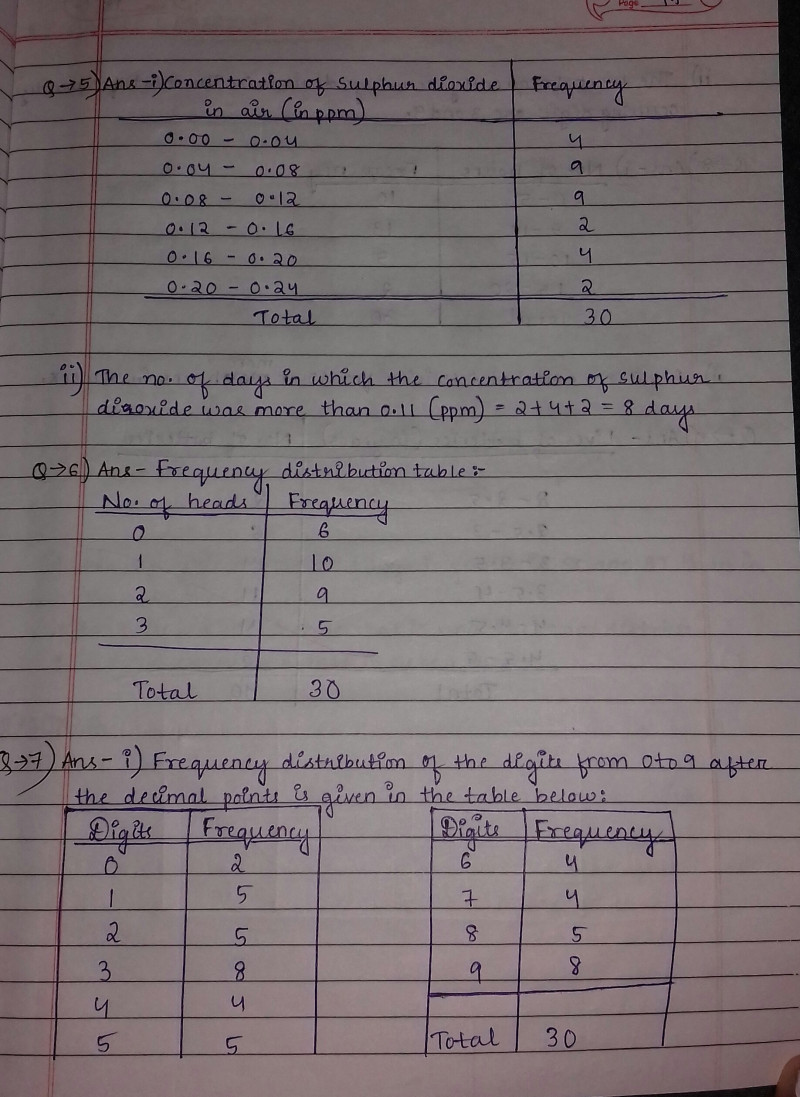 Page
Q→5) Ans - i) Concentration of Sulphur dioxide | Frequency
in air (in ppm)
0.00 - 0.04 | 4
0.04 - 0.08 | 9
0.08 - 0.12 | 9
0.12 - 0.16 | 2
0.16 - 0.20 | 4
0.20 - 0.24 | 2
Total | 30
ii) The no. of days in which the concentration of sulphur
diaoxide was more than 0.11 (ppm) = 2+4+2 = 8 days
Q→6) Ans - Frequency distribution table :-
No. of heads | Frequency
0 | 6
1 | 10
2 | 9
3 | 5
Total | 30
Q→7) Ans - i) Frequency distribution of the digits from 0 to 9 after
the decimal points is given in the table below:
Digits | Frequency
0 | 2
1 | 5
2 | 5
3 | 8
4 | 4
5 | 5
Digits | Frequency
6 | 4
7 | 4
8 | 5
9 | 8
Total | 30